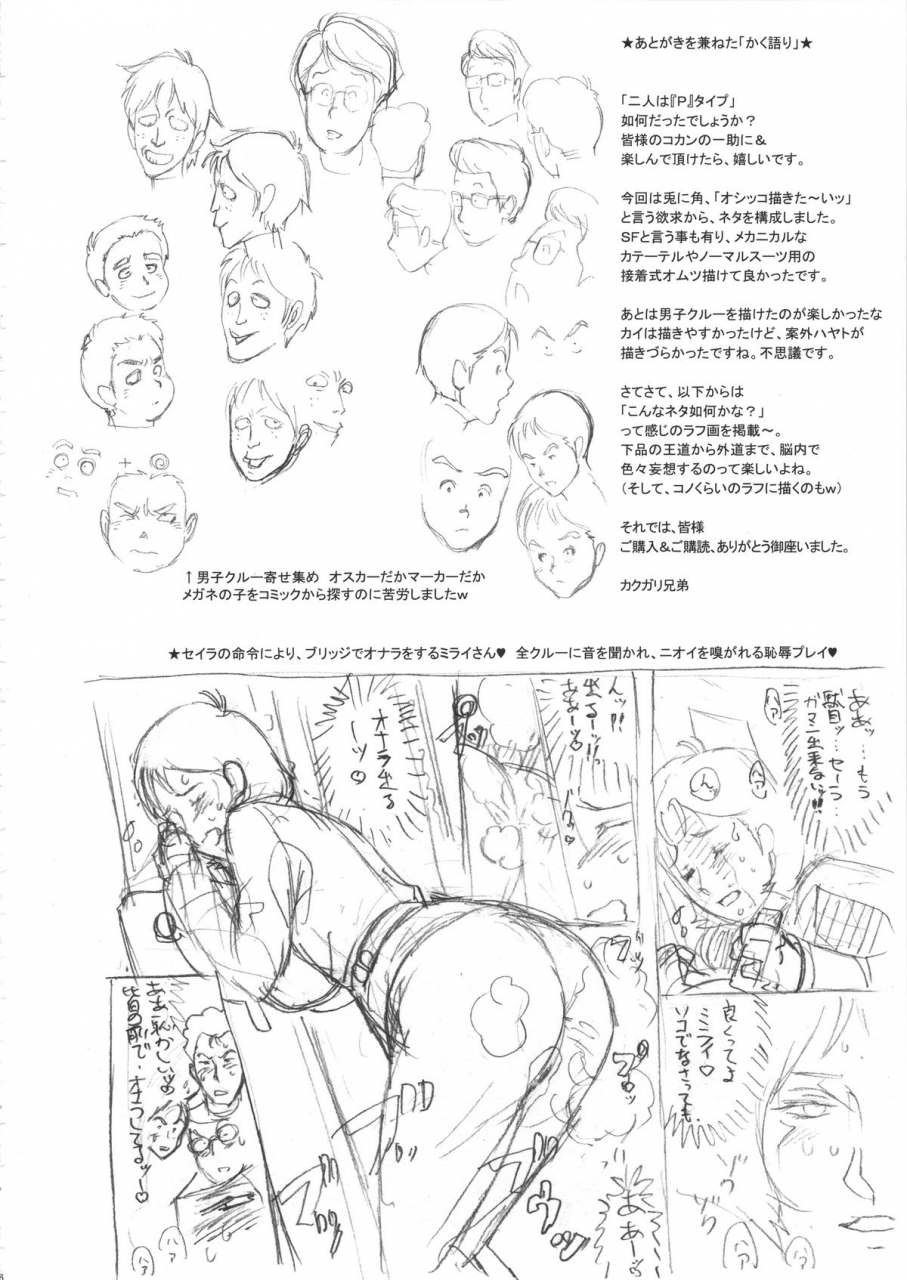 ★あとがきを兼ねた「かく語り」★
「二人は『P』タイプ」
如何だったでしょうか？
皆様のコカンの一助に＆
楽しんで頂けたら、嬉しいです。
今回は兎に角、「オシッコ描きた〜いッ」
と言う欲求から、ネタを構成しました。
SFと言う事も有り、メカニカルな
カテーテルやノーマルスーツ用の
接着式オムツ描けて良かったです。
あとは男子クルーを描けたのが楽しかったな
カイは描きやすかったけど、案外ハヤトが
描きづらかったですね。不思議です。
さてさて、以下からは
「こんなネタ如何かな？」
って感じのラフ画を掲載〜。
下品の王道から外道まで、脳内で
色々妄想するのって楽しいよね。
（そして、コノくらいのラフに描くのもw）
それでは、皆様
ご購入&ご購読、ありがとう御座いました。
カクガリ兄弟
↑男子クルー寄せ集め　オスカーだかマーカーだか
メガネの子をコミックから探すのに苦労しましたw
★セイラの命令により、ブリッジでオナラをするミライさん♥　全クルーに音を聞かれ、ニオイを嗅がれる恥辱プレイ♥
ああッ…もう
駄目ッ…セーラ…
ガマン出来ないッ!!
ハァ
ハァ
良くってよ
ミライ♡
ソコでなさっても
ゾク
ゾク
ハァ
ハァ
んッ!!
出るーッ!!
ああーッ
オナラ出る
ーッ♡
ああーッ
ああ恥かしいッ
皆の前で、オナラ
出るッー♡
ハァ
ハァ